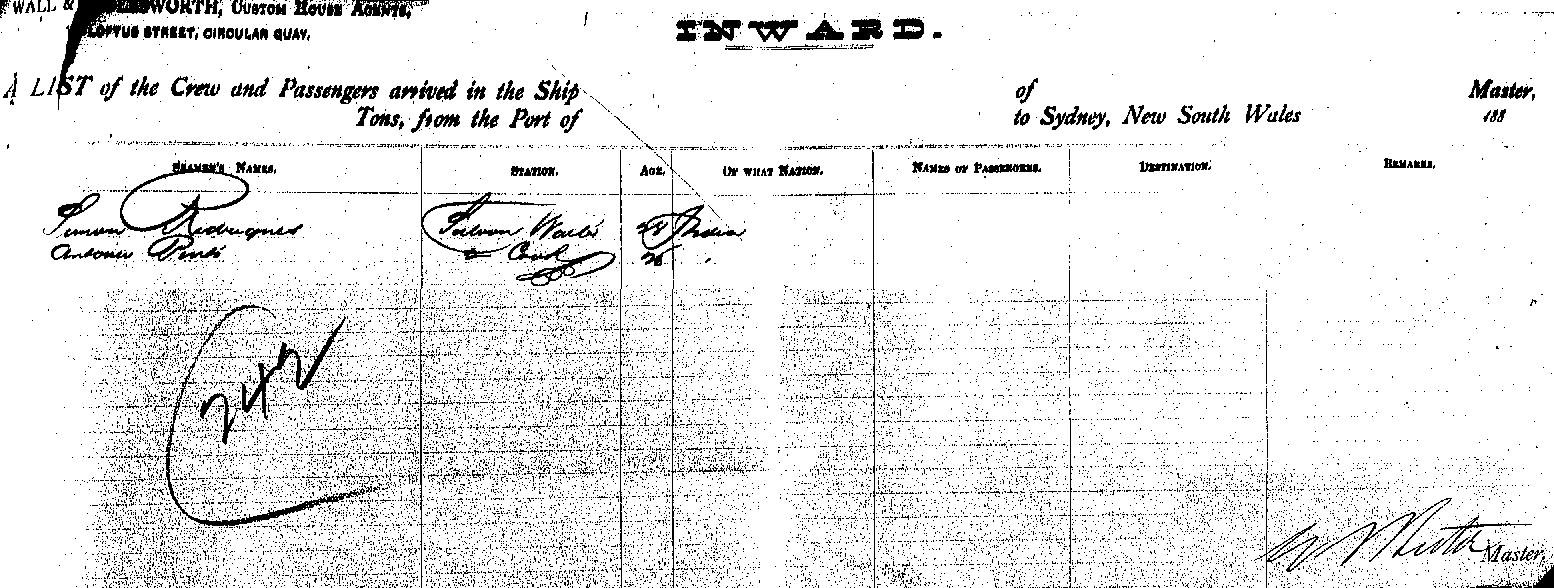 WALL & WORTH, CUSTOM HOUSE AGENTS,
LOFTUS STREET, CIRCULAR QUAY.
INWARD.
A LIST of the Crew and Passengers arrived in the Ship of Master,
Tons, from the Port of to Sydney, New South Wales 188
SEAMEN'S NAMES. STATION. AGE. OF WHAT NATION. NAMES OF PASSENGERS. DESTINATION. REMARKS.
Simon Rodrigues Saloon Waiter India
Antonio Pinto Cook 26
242
Master,